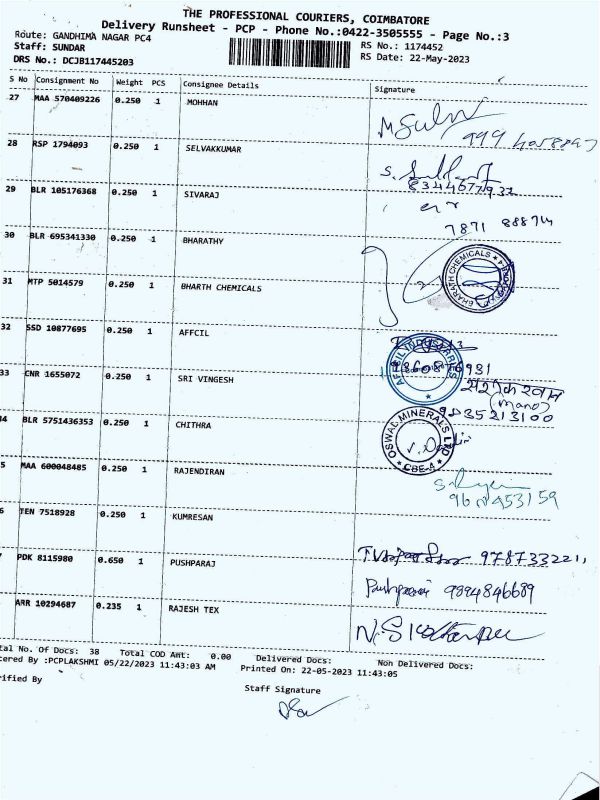 THE PROFESSIONAL COURIERS, COIMBATORE
Delivery Runsheet - PCP - Phone No.:0422-3505555 - Page No.:3
Route: GANDHIMA NAGAR PC4
RS No.: 1174452
Staff: SUNDAR
RS Date: 22-May-2023
DRS No.: DCJB117445203
S No Consignment No Weight PCS Consignee Details Signature
27 MAA 570409226 0.250 1 MOHHAN
28 RSP 1794093 0.250 1 SELVAKKUMAR
29 BLR 105176368 0.250 1 SIVARAJ
7871 888714
30 BLR 695341330 0.250 1 BHARATHY
31 MTP 5014579 0.250 1 BHARTH CHEMICALS
BHARATH CHEMICALS
32 SSD 10877695 0.250 1 AFFCIL
AFFCIL INDUSTRIES
33 CNR 1655072 0.250 1 SRI VINGESH
(Mano)
9835213100
4 BLR 5751436353 0.250 1 CHITHRA
OSWAL MINERALS LTD
CBE-4
5 MAA 600048485 0.250 1 RAJENDIRAN
6 TEN 7518928 0.250 1 KUMRESAN
PDK 8115980 0.650 1 PUSHPARAJ
978733221,
9894846689
ARR 10294687 0.235 1 RAJESH TEX
tal No. Of Docs: 38 Total COD Amt: 0.00 Delivered Docs: Non Delivered Docs:
tered By :PCPLAKSHMI 05/22/2023 11:43:03 AM Printed On: 22-05-2023 11:43:05
rified By
Staff Signature